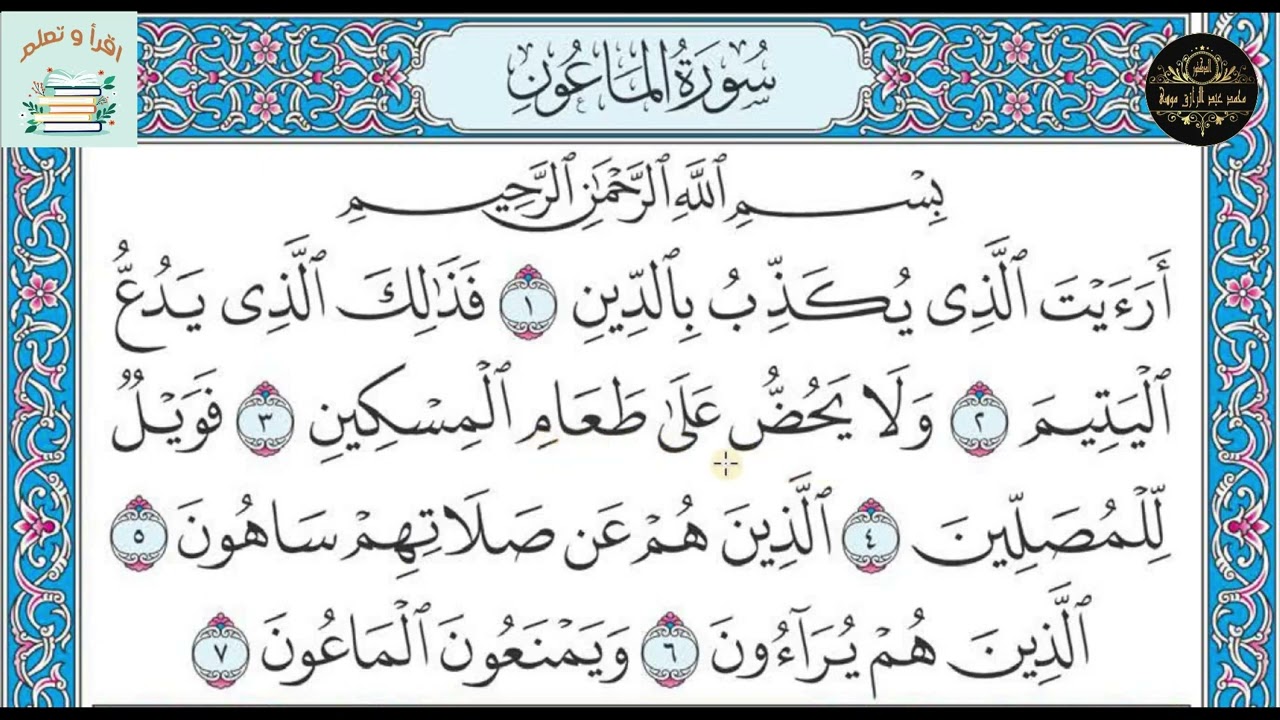 اقرأ و تعلم
سُورَةُ الْمَاعُونِ
الدكتور
محمد عبد الرازق موسى
بِسْمِ ٱللَّهِ ٱلرَّحْمَٰنِ ٱلرَّحِيمِ
أَرَءَيْتَ ٱلَّذِى يُكَذِّبُ بِٱلدِّينِ ١ فَذَٰلِكَ ٱلَّذِى يَدُعُّ
ٱلْيَتِيمَ ٢ وَلَا يَحُضُّ عَلَىٰ طَعَامِ ٱلْمِسْكِينِ ٣ فَوَيْلٌ
لِّلْمُصَلِّينَ ٤ ٱلَّذِينَ هُمْ عَن صَلَاتِهِمْ سَاهُونَ ٥
ٱلَّذِينَ هُمْ يُرَآءُونَ ٦ وَيَمْنَعُونَ ٱلْمَاعُونَ ٧